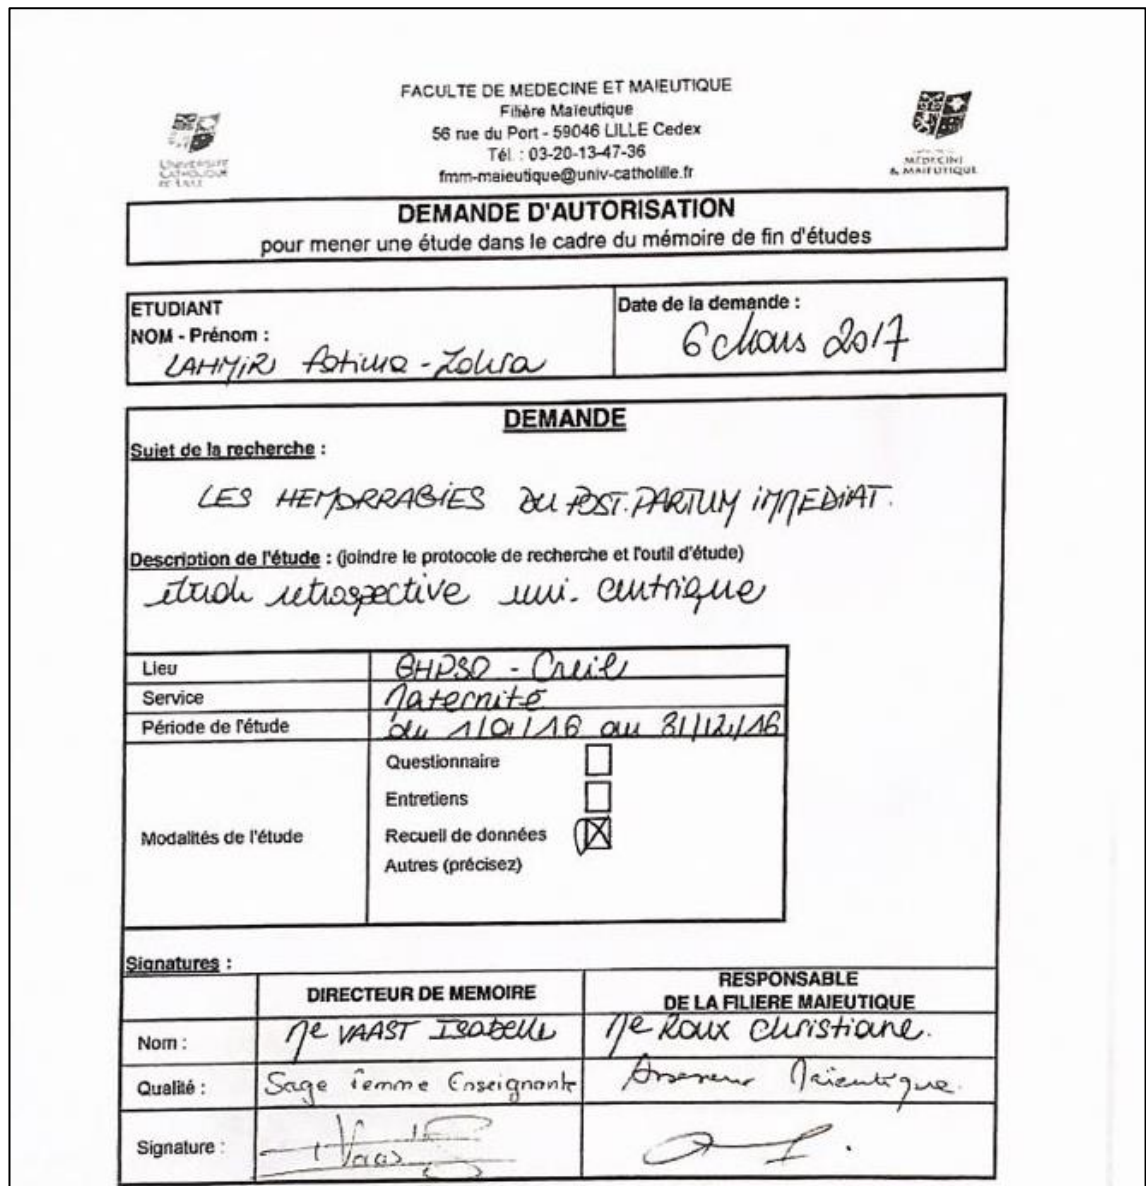 FACULTE DE MEDECINE ET MAIEUTIQUE
Filière Maïeutique
56 rue du Port - 59046 LILLE Cedex
Tél. : 03-20-13-47-36
fmm-maieutique@univ-catholille.fr
UNIVERSITE
CATHOLIQUE
DE LILLE
MEDECINE
& MAIEUTIQUE
DEMANDE D'AUTORISATION
pour mener une étude dans le cadre du mémoire de fin d'études
ETUDIANT
NOM - Prénom :
LAHMIRI Fatima-Zohra
Date de la demande :
6 Mars 2017
DEMANDE
Sujet de la recherche :
LES HEMORRAGIES DU POST.PARTUM IMMEDIAT.
Description de l'étude : (joindre le protocole de recherche et l'outil d'étude)
étude retrospective uni. centrique
Lieu GHPSO - Creil
Service Maternité
Période de l'étude du 1/01/16 au 31/12/16
Modalités de l'étude
Questionnaire
Entretiens
Recueil de données
Autres (précisez)
Signatures :
DIRECTEUR DE MEMOIRE
RESPONSABLE
DE LA FILIERE MAIEUTIQUE
Nom : Me VAAST Isabelle Me Roux Christiane.
Qualité : Sage femme Enseignante Assesseur Maïeutique.
Signature : Vaast